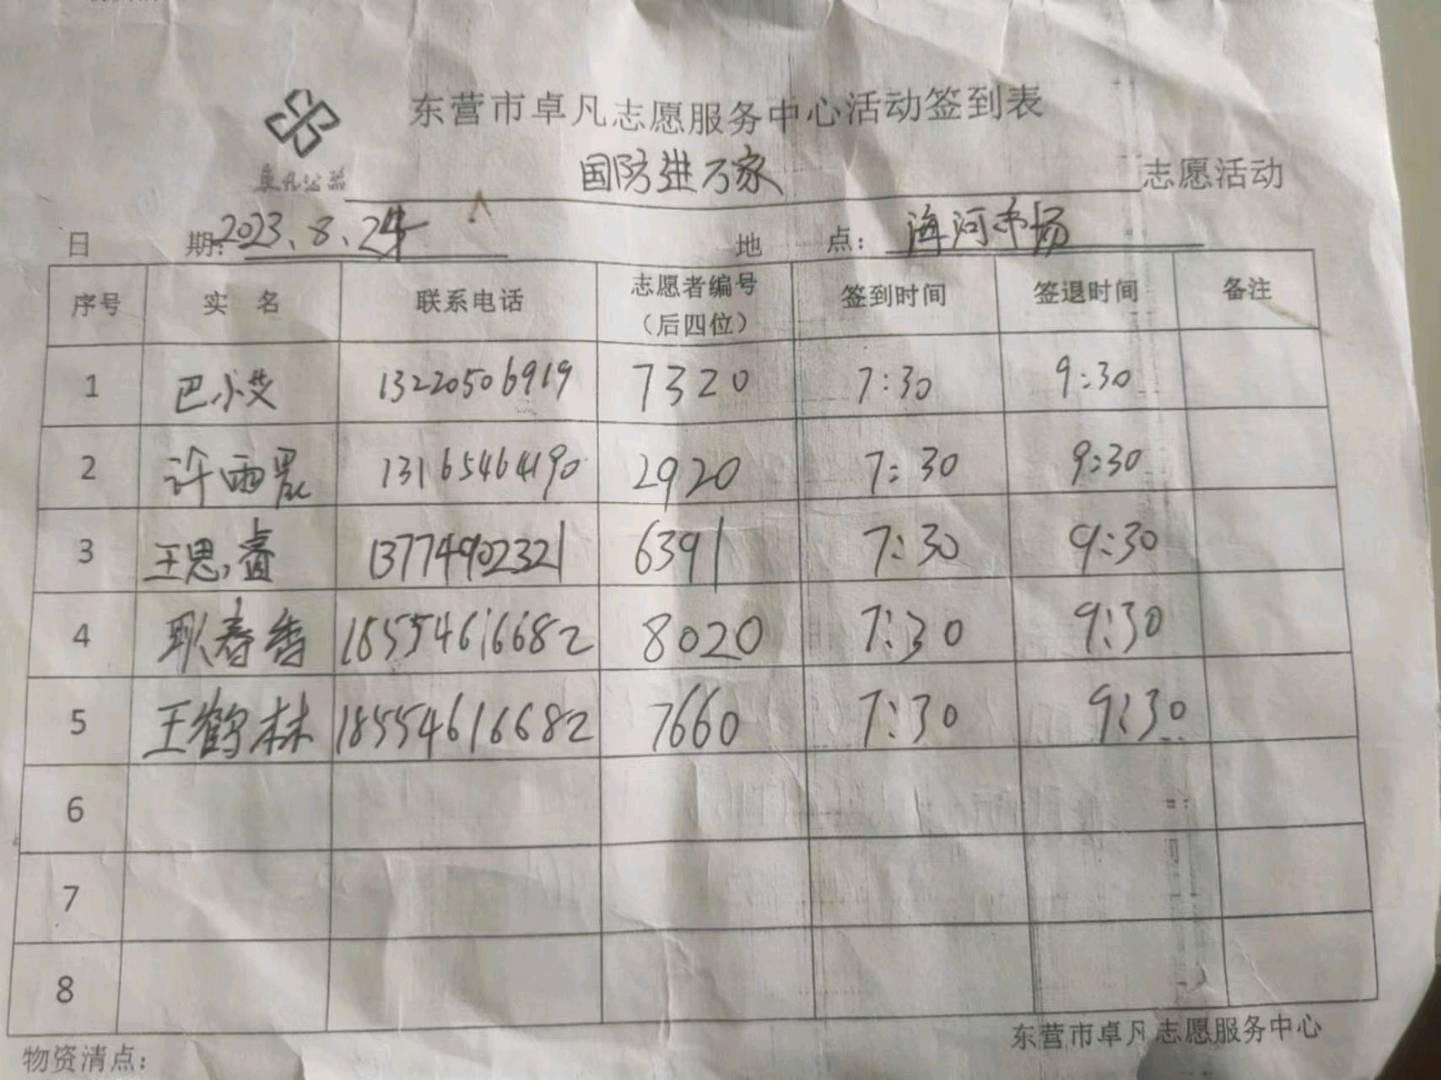 东营市卓凡志愿服务中心活动签到表
卓凡公益
国防进万家 志愿活动
日 期: 2023.8.24 地 点: 海河市场
序号 实 名 联系电话 志愿者编号（后四位） 签到时间 签退时间 备注
1 巴小艾 13220506919 7320 7:30 9:30
2 许雨晨 13165464190 2920 7:30 9:30
3 王思睿 13774902321 6391 7:30 9:30
4 耿春香 18554616682 8020 7:30 9:30
5 王鹤林 18554616682 7660 7:30 9:30
6
7
8
东营市卓凡志愿服务中心
物资清点: